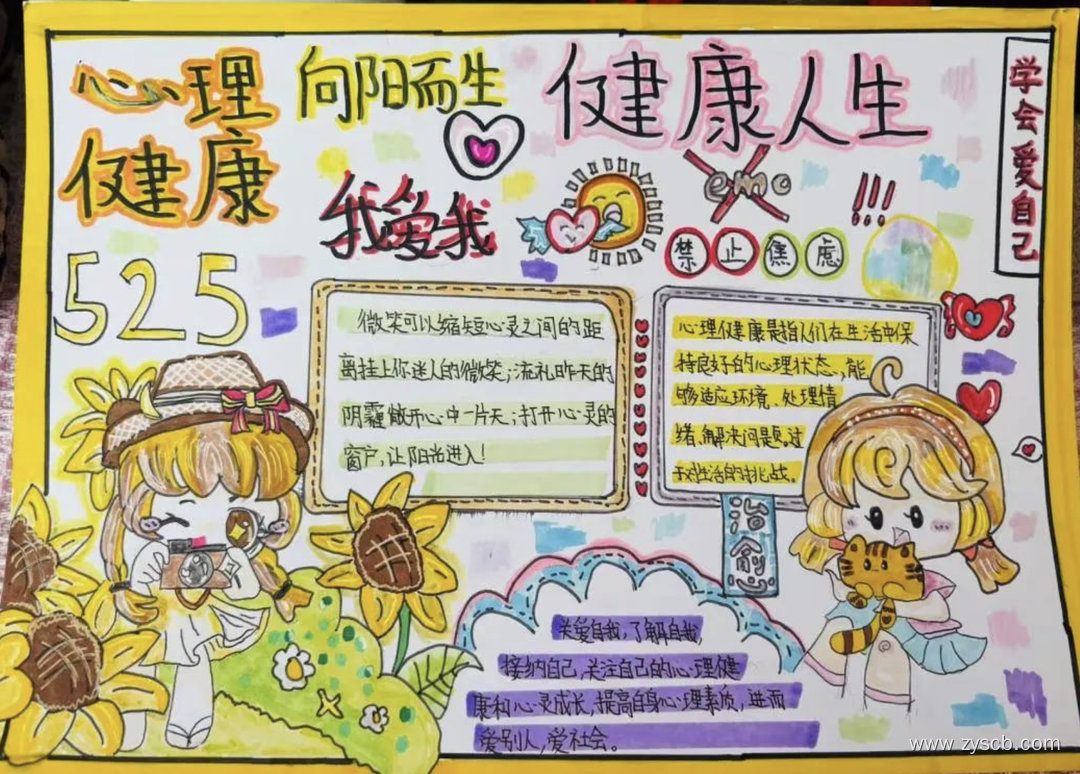 心理
健康
向阳而生
健康人生
学会爱自己
我爱我
emo
!!!
禁止焦虑
525
微笑可以缩短心灵之间的距
离挂上你迷人的微笑;流礼昨天的
阴霾敞开心中一片天;打开心灵的
窗户,让阳光进入!
心理健康是指人们在生活中保
持良好的心理状态,能
够适应环境、处理情
绪、解决问题。过
对生活的挑战。
治愈
关爱自我,了解自我,
接纳自己,关注自己的心理健
康和心灵成长,提高自身心理素质,进而
爱别人,爱社会。
www.zyscb.com